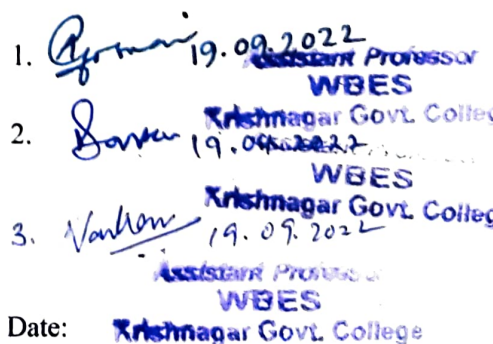 1. 19.09.2022
Assistant Professor
WBES
Krishnagar Govt. Colleg
2. 19.09.2022
WBES
Krishnagar Govt. Colleg
3. 19.09.2022
Assistant Profess
WBES
Date: Krishnagar Govt. College